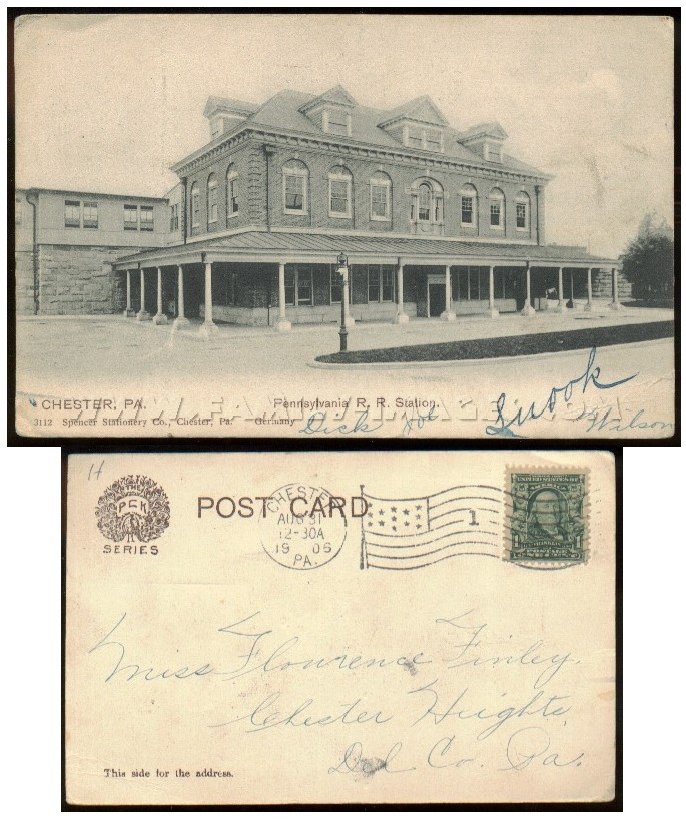 CHESTER, PA.
Pennsylvania R. R. Station.
3112 Spencer Stationery Co., Chester, Pa. Germany
Dick Joe Snook Wilson
H
THE
PCK
SERIES
POST CARD
CHESTER
AUG 31
12-30A
1906
PA.
1
UNITED STATES
OF AMERICA
1 POSTAGE 1
Miss Flourence Finley.
Chester Heights,
Del Co. Pa.
This side for the address.